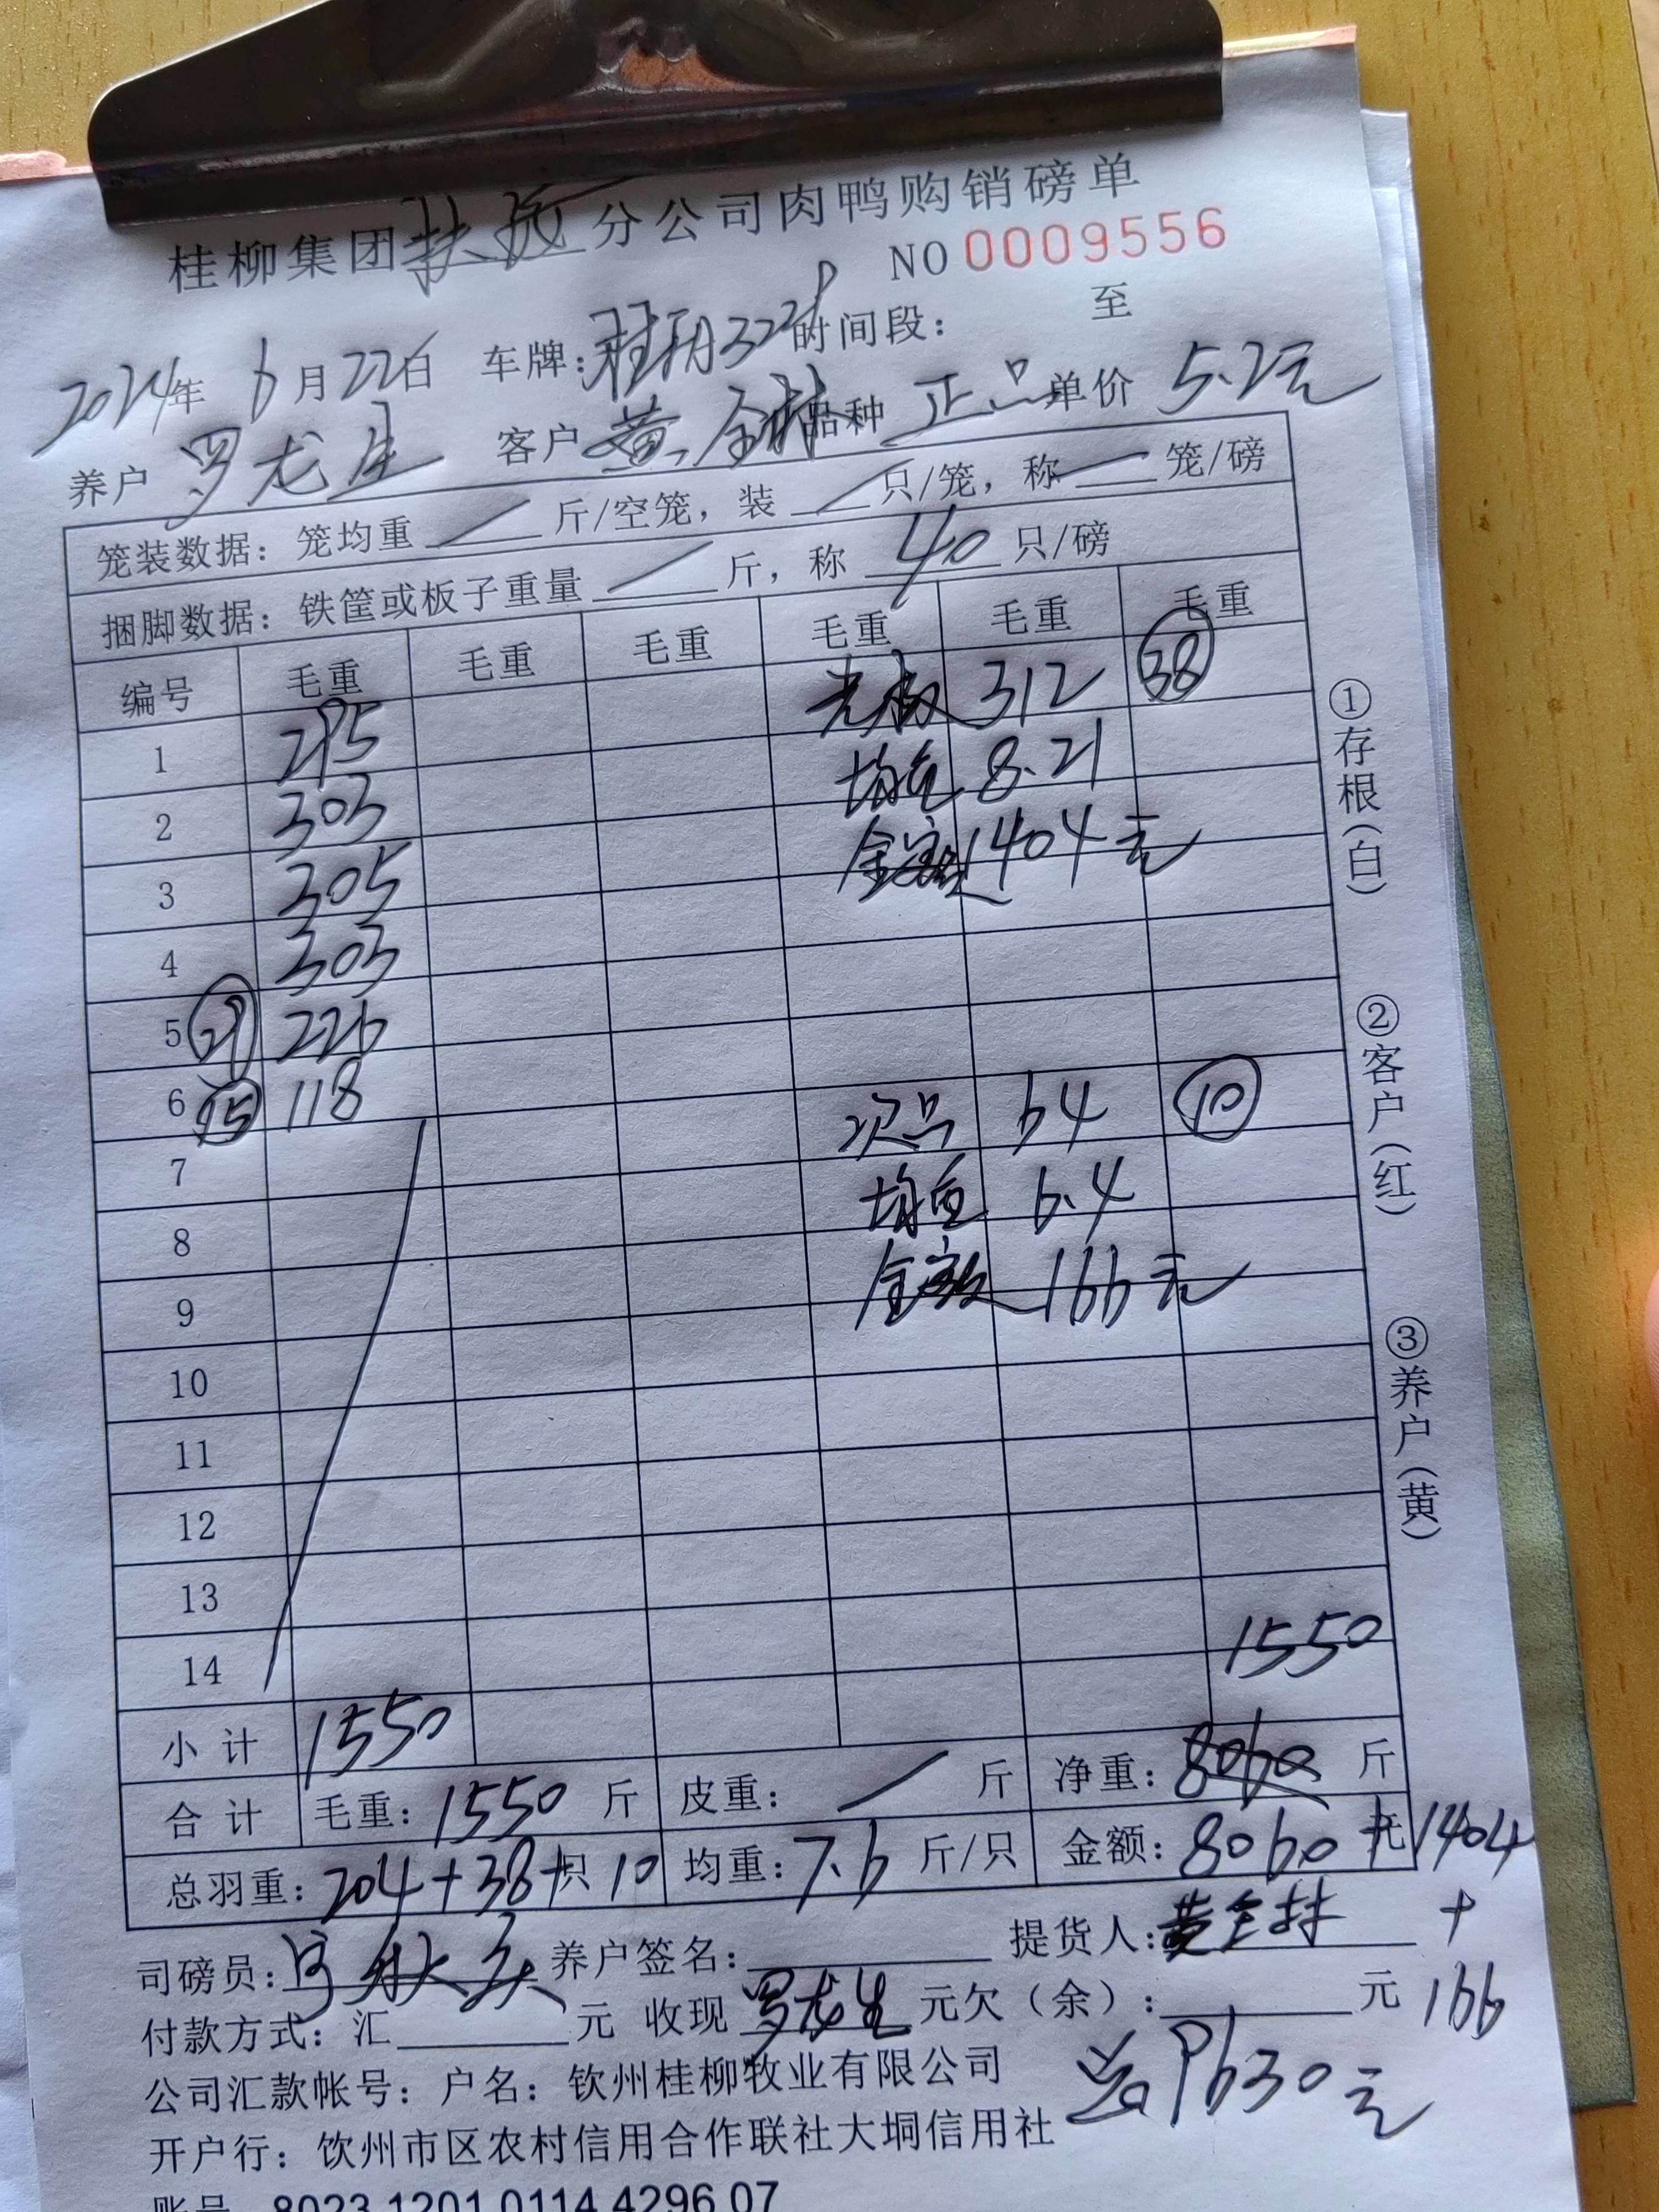 桂柳集团 分公司肉鸭购销磅单
NO 0009556
2024年 6月22日 车牌: 时间段: 至
养户 罗龙生 客户 黄金林 品种 正品 单价 5.2元
笼装数据: 笼均重 斤/空笼, 装 只/笼, 称 笼/磅
捆脚数据: 铁筐或板子重量 斤, 称 40 只/磅
编号 毛重 毛重 毛重 毛重 毛重 毛重
1 295 光板 312 38
2 303 均重 8.21
3 305 金额 1404元
4 303
5 29 226
6 15 118 次品 64 10
7 均重 6.4
8 金额 166元
9
10
11
12
13
14 1550
小计 1550
合计 毛重: 1550 斤 皮重: 斤 净重: 8060 斤
总羽重: 204+38+只 10 均重: 7.6 斤/只 金额: 8060 元 +1404
司磅员: 养户签名: 提货人: 黄金林 +
付款方式: 汇 元 收现 罗龙生 元欠(余): 元 166
公司汇款帐号: 户名: 钦州桂柳牧业有限公司 总9630元
开户行: 钦州市区农村信用合作联社大垌信用社
账号 8023 1201 0114 4296 07
①存根(白)
②客户(红)
③养户(黄)